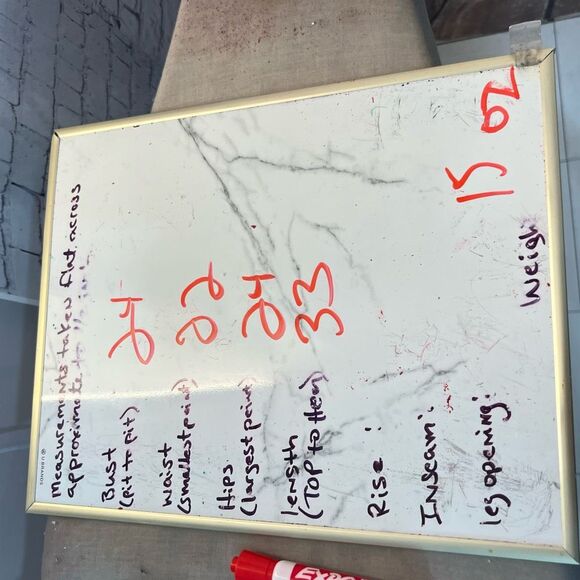 Measurements taken flat across
approximate to
Bust 24
(pit to pit)
Waist 22
(smallest point)
Hips 24
(largest point)
length 33
(Top to Hem)
Rise:
Inseam:
leg opening:
Weigh 15 oz
U BRANDS
EXPO